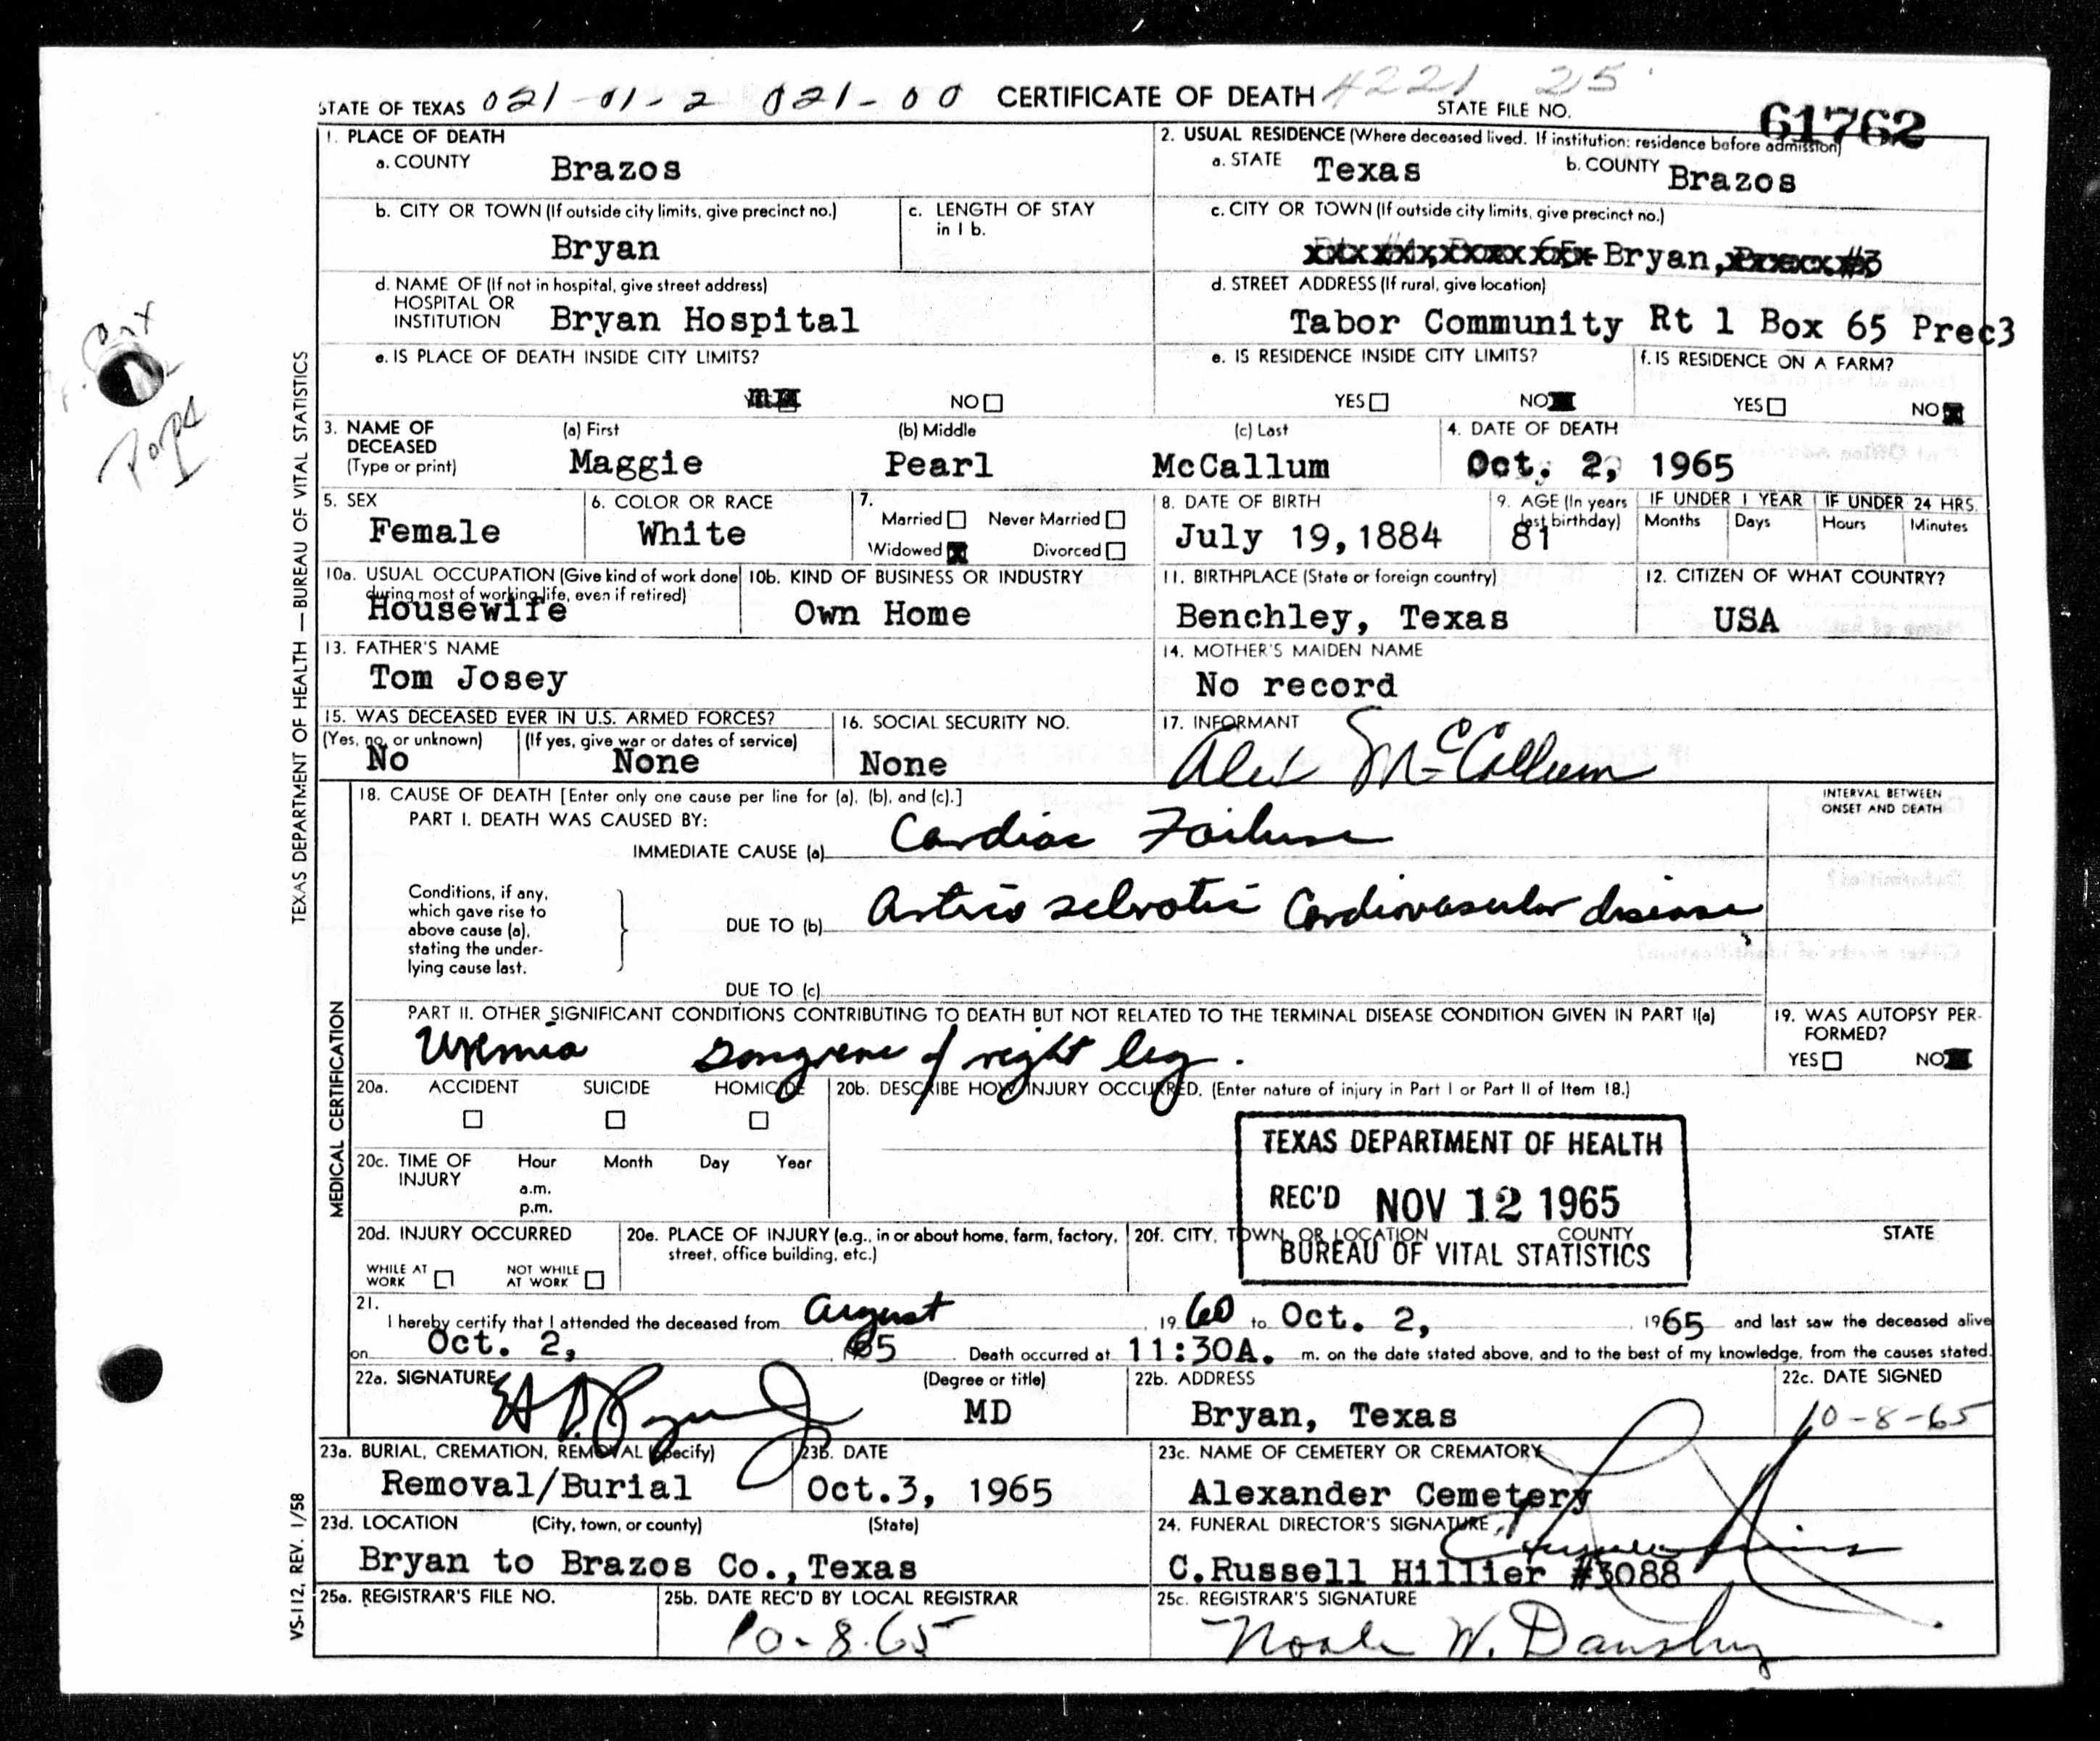 STATE OF TEXAS 021-01-2 021-00 CERTIFICATE OF DEATH 4221 25
STATE FILE NO. 61762
1. PLACE OF DEATH
a. COUNTY Brazos
2. USUAL RESIDENCE (Where deceased lived. If institution: residence before admission)
a. STATE Texas b. COUNTY Brazos
b. CITY OR TOWN (If outside city limits, give precinct no.) Bryan
c. LENGTH OF STAY in 1 b.
c. CITY OR TOWN (If outside city limits, give precinct no.)
Bryan, #3
d. NAME OF (If not in hospital, give street address)
HOSPITAL OR
INSTITUTION Bryan Hospital
d. STREET ADDRESS (If rural, give location)
Tabor Community Rt 1 Box 65 Prec3
e. IS PLACE OF DEATH INSIDE CITY LIMITS?
NO
e. IS RESIDENCE INSIDE CITY LIMITS?
YES NO
f. IS RESIDENCE ON A FARM?
YES NO
3. NAME OF DECEASED (Type or print)
(a) First (b) Middle (c) Last
Maggie Pearl McCallum
4. DATE OF DEATH
Oct. 2, 1965
5. SEX
Female
6. COLOR OR RACE
White
7.
Married Never Married
Widowed Divorced
8. DATE OF BIRTH
July 19, 1884
9. AGE (In years last birthday)
81
IF UNDER 1 YEAR
Months Days
IF UNDER 24 HRS.
Hours Minutes
10a. USUAL OCCUPATION (Give kind of work done during most of working life, even if retired)
Housewife
10b. KIND OF BUSINESS OR INDUSTRY
Own Home
11. BIRTHPLACE (State or foreign country)
Benchley, Texas
12. CITIZEN OF WHAT COUNTRY?
USA
13. FATHER'S NAME
Tom Josey
14. MOTHER'S MAIDEN NAME
No record
15. WAS DECEASED EVER IN U.S. ARMED FORCES?
(Yes, no, or unknown) (If yes, give war or dates of service)
No None
16. SOCIAL SECURITY NO.
None
17. INFORMANT
Alex McCallum
18. CAUSE OF DEATH [Enter only one cause per line for (a), (b), and (c).]
INTERVAL BETWEEN
ONSET AND DEATH
PART I. DEATH WAS CAUSED BY:
IMMEDIATE CAUSE (a) Cardiac Failure
Conditions, if any,
which gave rise to
above cause (a),
stating the under-
lying cause last.
DUE TO (b) Arterio sclerotic Cardiovascular disease
DUE TO (c)
PART II. OTHER SIGNIFICANT CONDITIONS CONTRIBUTING TO DEATH BUT NOT RELATED TO THE TERMINAL DISEASE CONDITION GIVEN IN PART I(a)
Uremia Gangrene of right leg.
19. WAS AUTOPSY PER-
FORMED?
YES NO
20a. ACCIDENT SUICIDE HOMICIDE
20b. DESCRIBE HOW INJURY OCCURRED. (Enter nature of injury in Part I or Part II of Item 18.)
TEXAS DEPARTMENT OF HEALTH
REC'D NOV 12 1965
BUREAU OF VITAL STATISTICS
20c. TIME OF INJURY
Hour Month Day Year
a.m.
p.m.
20d. INJURY OCCURRED
WHILE AT WORK NOT WHILE AT WORK
20e. PLACE OF INJURY (e.g., in or about home, farm, factory, street, office building, etc.)
20f. CITY, TOWN, OR LOCATION COUNTY STATE
21.
I hereby certify that I attended the deceased from August, 1960 to Oct. 2, 1965 and last saw the deceased alive
on Oct. 2, 1965. Death occurred at 11:30A. m. on the date stated above, and to the best of my knowledge, from the causes stated.
22a. SIGNATURE (Degree or title)
MD
22b. ADDRESS
Bryan, Texas
22c. DATE SIGNED
10-8-65
23a. BURIAL, CREMATION, REMOVAL (Specify)
Removal/Burial
23b. DATE
Oct.3, 1965
23c. NAME OF CEMETERY OR CREMATORY
Alexander Cemetery
23d. LOCATION (City, town, or county) (State)
Bryan to Brazos Co., Texas
24. FUNERAL DIRECTOR'S SIGNATURE
C.Russell Hillier #3088
25a. REGISTRAR'S FILE NO.
25b. DATE REC'D BY LOCAL REGISTRAR
10-8-65
25c. REGISTRAR'S SIGNATURE
W. Dansby
TEXAS DEPARTMENT OF HEALTH — BUREAU OF VITAL STATISTICS
MEDICAL CERTIFICATION
VS-112, REV. 1/58